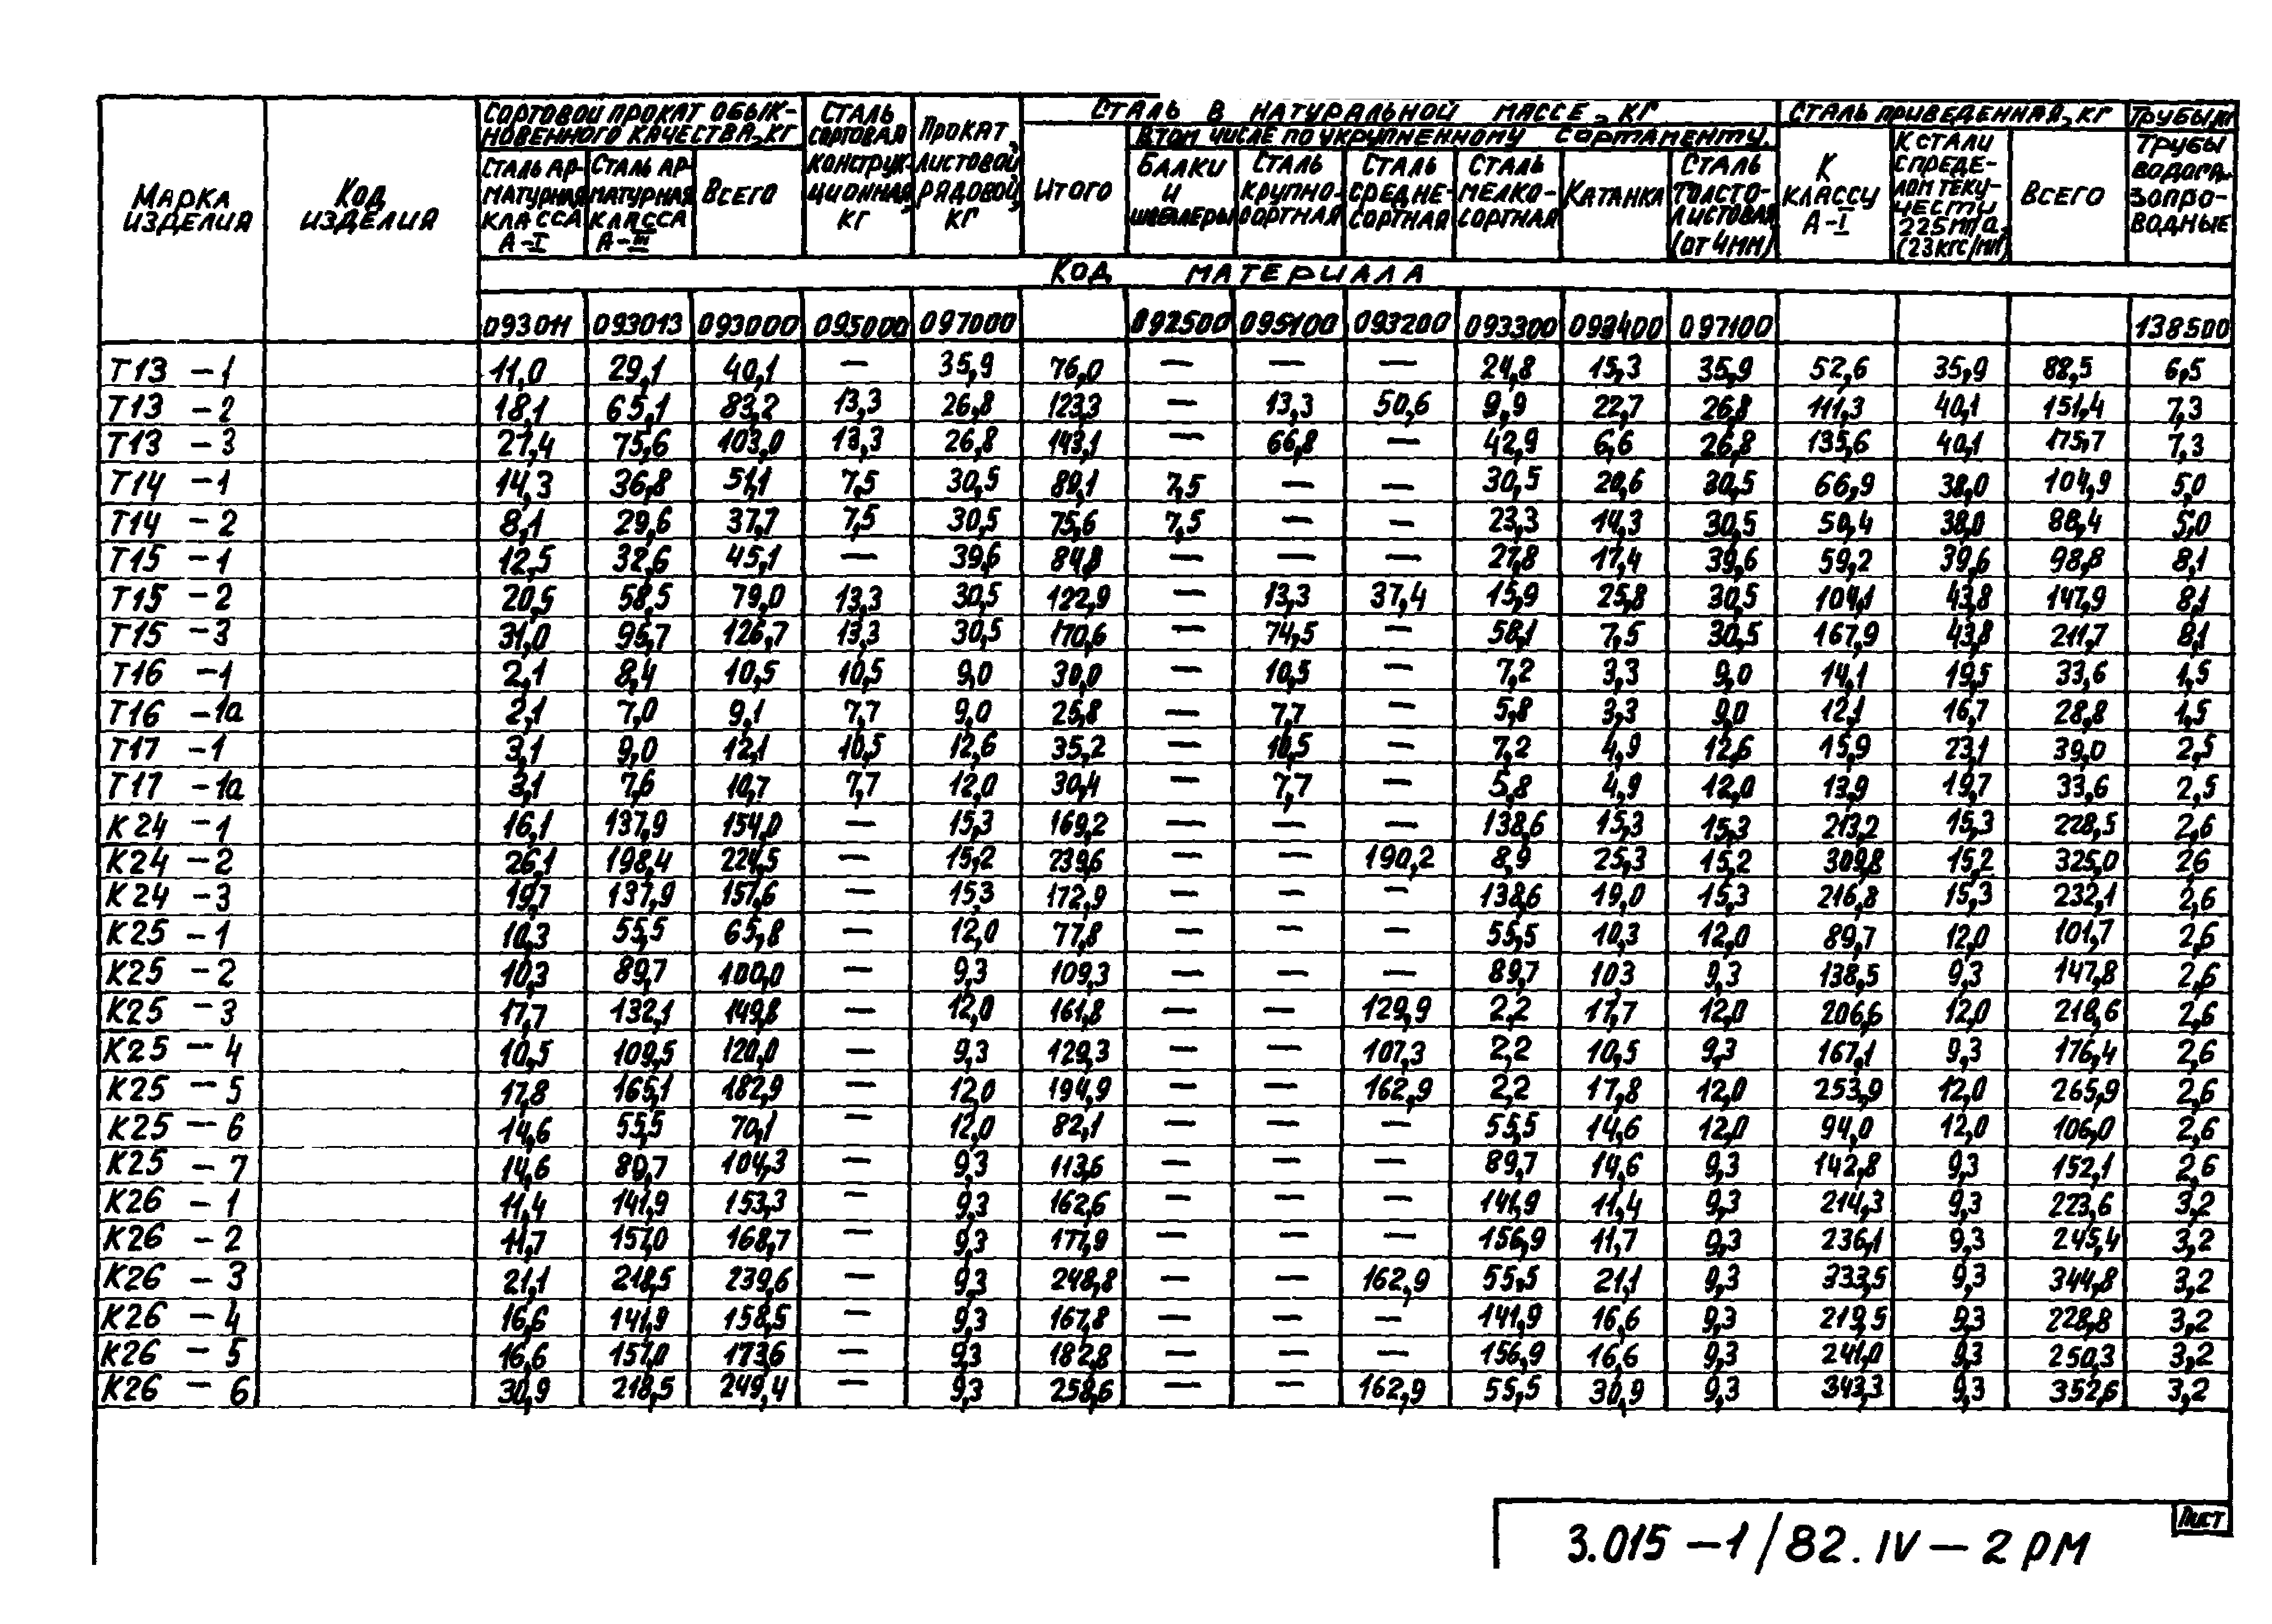 Марка изделия
Код изделия
Сортовой прокат обыкновенного качества, кг
Сталь сортовая конструкционная, кг
Прокат листовой рядовой, кг
Сталь в натуральной массе, кг
Сталь приведенная, кг
Трубы, м
Сталь арматурная класса А-I
Сталь арматурная класса А-III
Всего
Итого
В том числе по укрупненному сортаменту.
Балки и швеллеры
Сталь крупносортная
Сталь среднесортная
Сталь мелкосортная
Катанка
Сталь толстолистовая (от 4мм)
К классу А-I
К стали с пределом текучести 225МПа, (23кгс/мм)
Всего
Трубы водогазопроводные
Код материала
093011 093013 093000 095000 097000 092500 095100 093200 093300 093400 097100 138500
Т13 -1 11,0 29,1 40,1 — 35,9 76,0 — — — 24,8 15,3 35,9 52,6 35,9 88,5 6,5
Т13 -2 18,1 65,1 83,2 13,3 26,8 123,3 — 13,3 50,6 9,9 22,7 26,8 111,3 40,1 151,4 7,3
Т13 -3 27,4 75,6 103,0 13,3 26,8 143,1 — 66,8 — 42,9 6,6 26,8 135,6 40,1 175,7 7,3
Т14 -1 14,3 36,8 51,1 7,5 30,5 89,1 7,5 — — 30,5 20,6 30,5 66,9 38,0 104,9 5,0
Т14 -2 8,1 29,6 37,7 7,5 30,5 75,6 7,5 — — 23,3 14,3 30,5 50,4 38,0 88,4 5,0
Т15 -1 12,5 32,6 45,1 — 39,6 84,8 — — — 27,8 17,4 39,6 59,2 39,6 98,8 8,1
Т15 -2 20,5 58,5 79,0 13,3 30,5 122,9 — 13,3 37,4 15,9 25,8 30,5 104,1 43,8 147,9 8,1
Т15 -3 31,0 95,7 126,7 13,3 30,5 170,6 — 74,5 — 58,1 7,5 30,5 167,9 43,8 211,7 8,1
Т16 -1 2,1 8,4 10,5 10,5 9,0 30,0 — 10,5 — 7,2 3,3 9,0 14,1 19,5 33,6 1,5
Т16 -1а 2,1 7,0 9,1 7,7 9,0 25,8 — 7,7 — 5,8 3,3 9,0 12,1 16,7 28,8 1,5
Т17 -1 3,1 9,0 12,1 10,5 12,6 35,2 — 10,5 — 7,2 4,9 12,6 15,9 23,1 39,0 2,5
Т17 -1а 3,1 7,6 10,7 7,7 12,0 30,4 — 7,7 — 5,8 4,9 12,0 13,9 19,7 33,6 2,5
К24 -1 16,1 137,9 154,0 — 15,3 169,2 — — — 138,6 15,3 15,3 213,2 15,3 228,5 2,6
К24 -2 26,1 198,4 224,5 — 15,2 239,6 — — 190,2 8,9 25,3 15,2 309,8 15,2 325,0 26
К24 -3 19,7 137,9 157,6 — 15,3 172,9 — — — 138,6 19,0 15,3 216,8 15,3 232,1 2,6
К25 -1 10,3 55,5 65,8 — 12,0 77,8 — — — 55,5 10,3 12,0 89,7 12,0 101,7 2,6
К25 -2 10,3 89,7 100,0 — 9,3 109,3 — — — 89,7 103 9,3 138,5 9,3 147,8 2,6
К25 -3 17,7 132,1 149,8 — 12,0 161,8 — — 129,9 2,2 17,7 12,0 206,6 12,0 218,6 2,6
К25 -4 10,5 109,5 120,0 — 9,3 129,3 — — 107,3 2,2 10,5 9,3 167,1 9,3 176,4 2,6
К25 -5 17,8 165,1 182,9 — 12,0 194,9 — — 162,9 2,2 17,8 12,0 253,9 12,0 265,9 2,6
К25 -6 14,6 55,5 70,1 — 12,0 82,1 — — — 55,5 14,6 12,0 94,0 12,0 106,0 2,6
К25 -7 14,6 89,7 104,3 — 9,3 113,6 — — — 89,7 14,6 9,3 142,8 9,3 152,1 2,6
К26 -1 11,4 141,9 153,3 — 9,3 162,6 — — — 141,9 11,4 9,3 214,3 9,3 223,6 3,2
К26 -2 11,7 157,0 168,7 — 9,3 177,9 — — — 156,9 11,7 9,3 236,1 9,3 245,4 3,2
К26 -3 21,1 218,5 239,6 — 9,3 248,8 — — 162,9 55,5 21,1 9,3 333,5 9,3 344,8 3,2
К26 -4 16,6 141,9 158,5 — 9,3 167,8 — — — 141,9 16,6 9,3 219,5 9,3 228,8 3,2
К26 -5 16,6 157,0 173,6 — 9,3 182,8 — — — 156,9 16,6 9,3 241,0 9,3 250,3 3,2
К26 -6 30,9 218,5 249,4 — 9,3 258,6 — — 162,9 55,5 30,9 9,3 343,3 9,3 352,6 3,2
Лист
3.015 -1/82. IV - 2 РМ